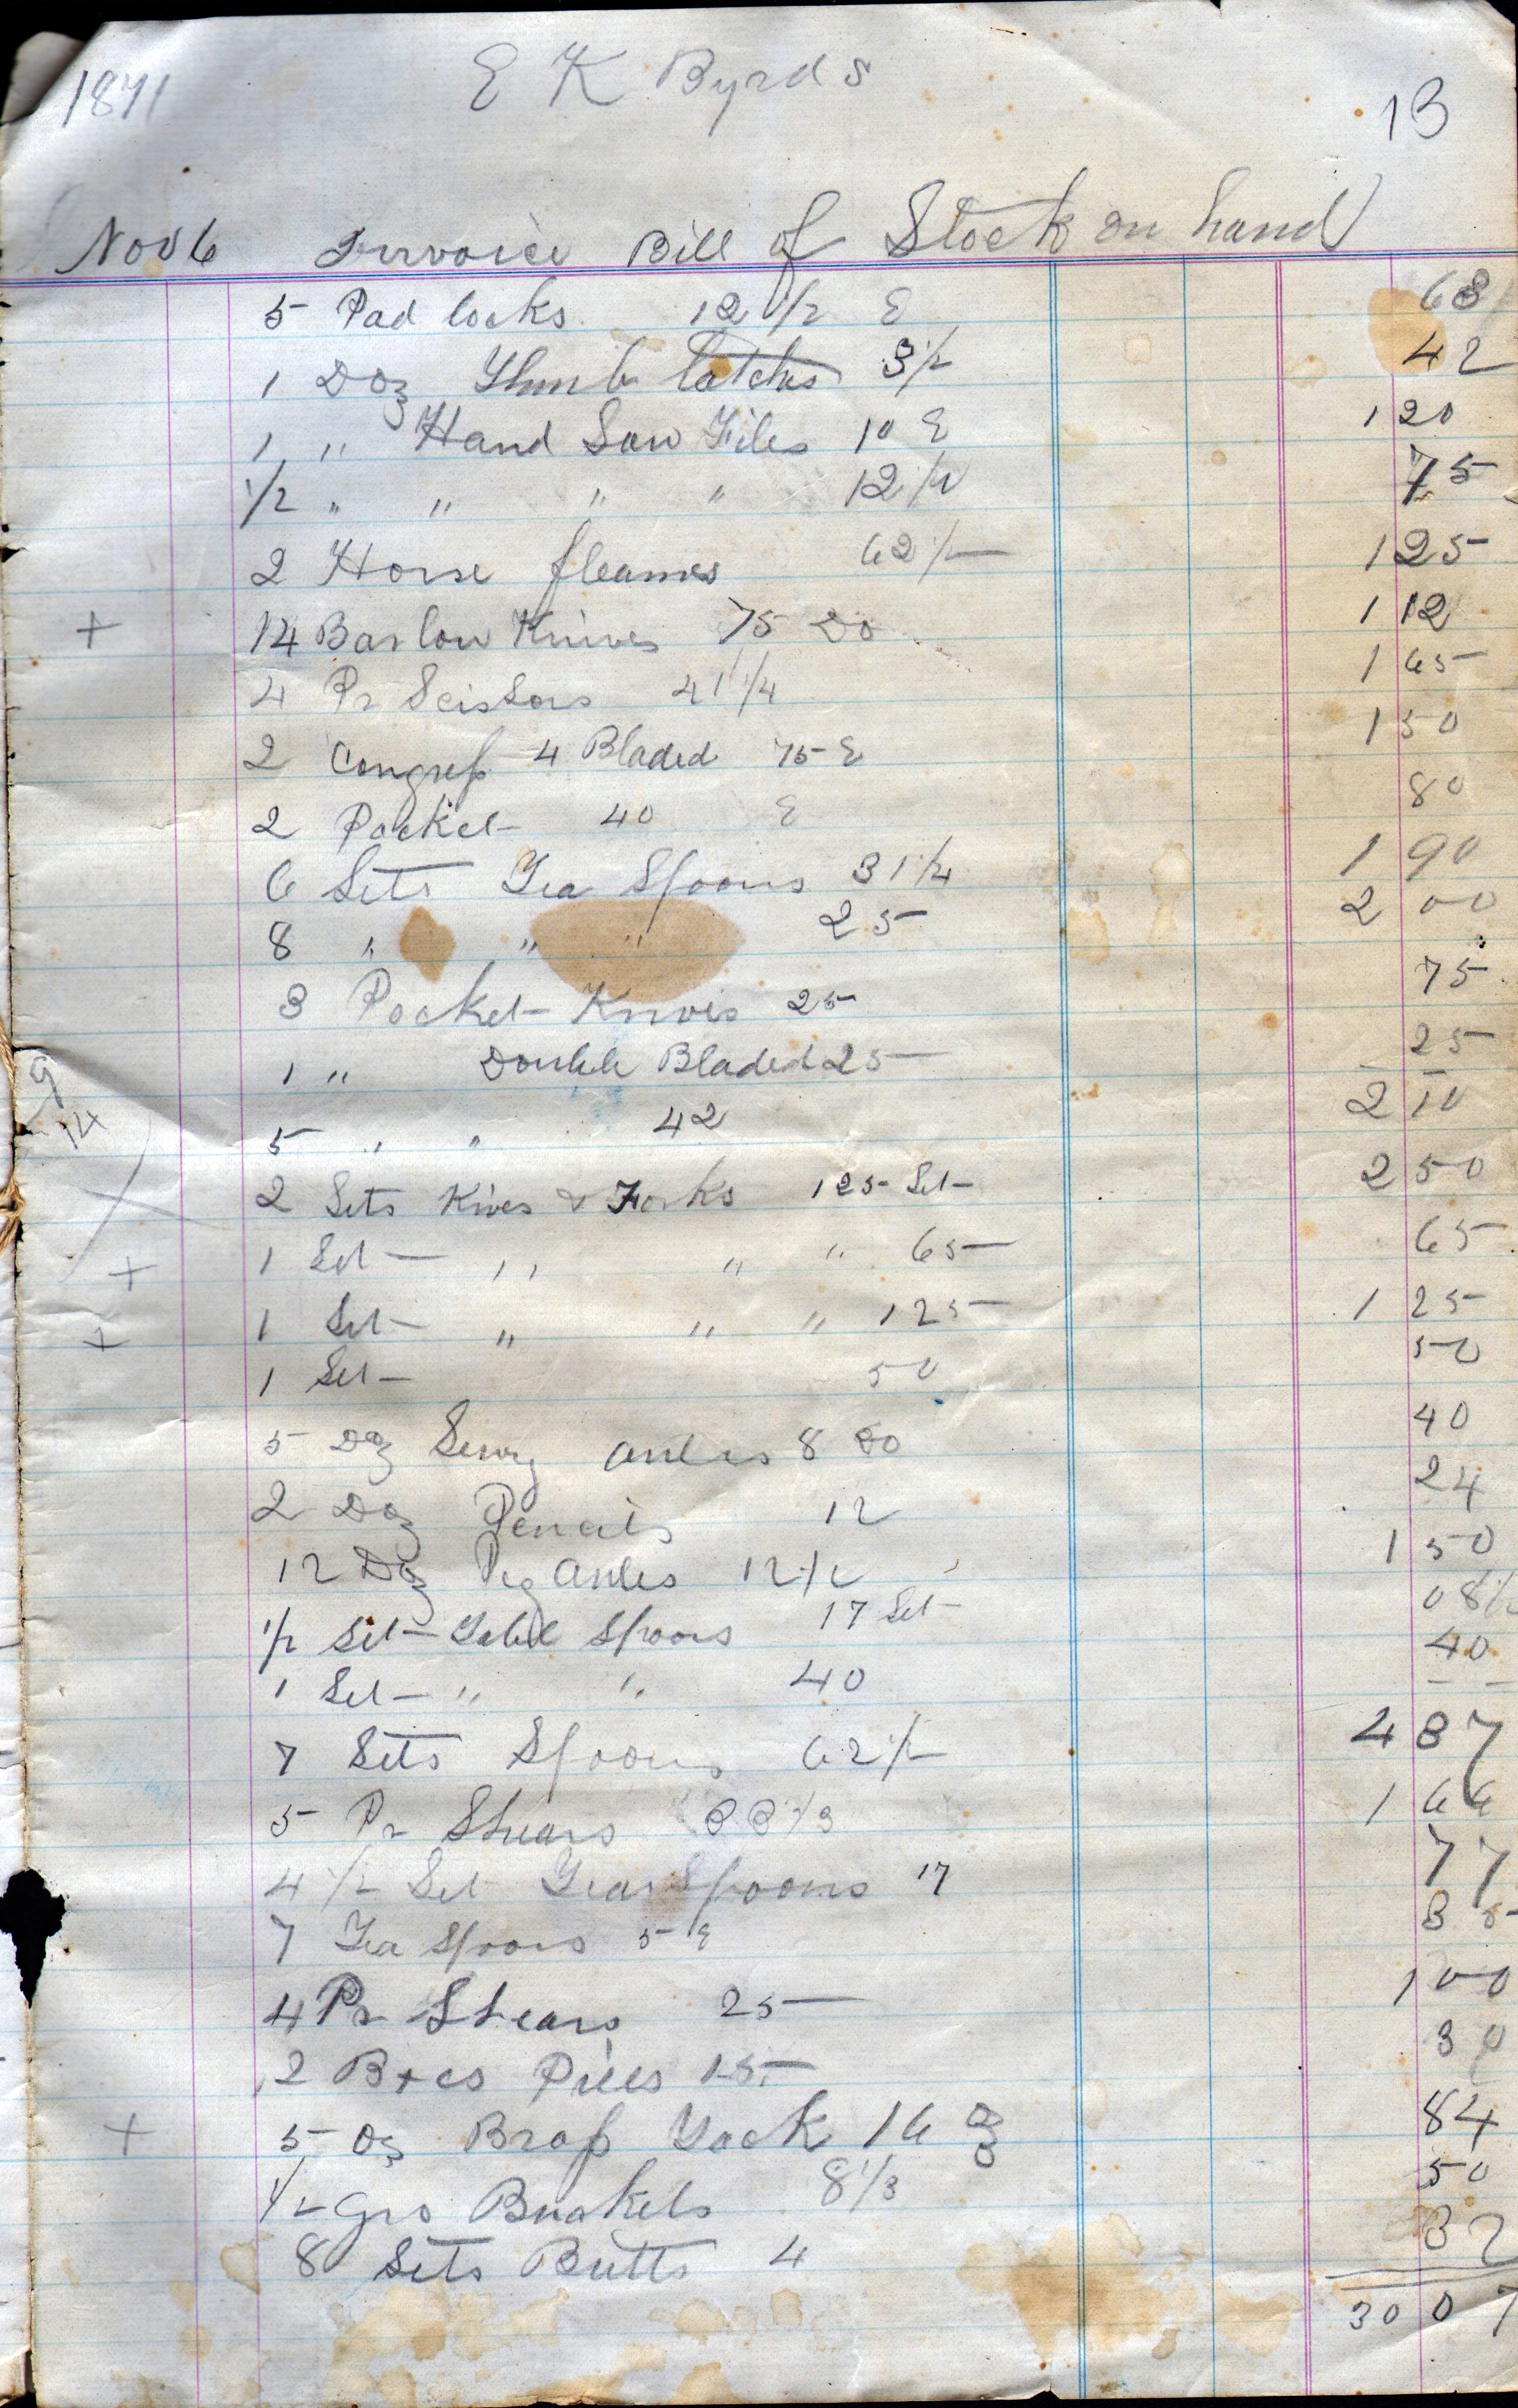 1871 E K Byrds 13
Nov 6 Invoice Bill of Stock on hand
5 Pad locks 12 1/2 E 63
1 Doz Thumb latches 3 1/2 42
1 " Hand Saw Files 10 E 1 20
1/2 " " " " 12 1/2 75
2 Horse fleames 62 1/2 1 25
+ 14 Barlow Knives 75 Do 1 12
4 Pr Scissors 41 1/4 1 65
2 Congress 4 Bladed 75 E 1 50
2 Pocket 40 E 80
6 Sets Tea Spoons 31 1/4 1 90
8 " " " 25 2 00
3 Pocket Knives 25 75
1 " Double Bladed 25 25
9
14
5 " " 42 2 10
2 Sets Kives & Forks 125 Set 2 50
+ 1 Set " " " 65 65
+ 1 Set " " " 125 1 25
1 Set 50 50
5 Doz Sewg awles 8 Do 40
2 Doz Pencils 12 24
12 Doz Peg Awles 12 1/2 1 50
1/2 Set Table Spoons 17 Set 08 1/2
1 Set " " 40 40
7 Sets Spoons 62 1/2 4 37
5 Pr Shears 33 1/3 1 66
4 1/2 Set Tea Spoons 17 77
7 Tea Spoons 5 E 35
4 Pr Shears 25 1 00
2 Bxes Pills 15 30
+ 5 Oz Brass 16 84
1/2 Gro 8 1/3 50
8 Sets Butts 4 32
30 07